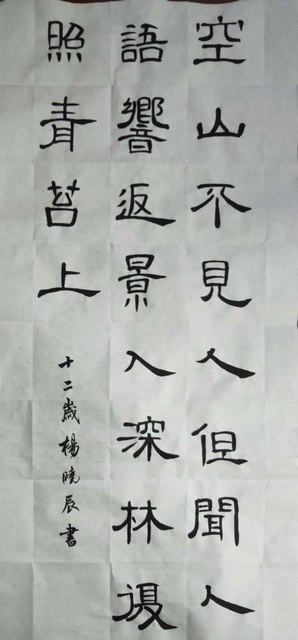 空山不見人但聞人
語響返景入深林復
照青苔上
十二歲楊曉辰書